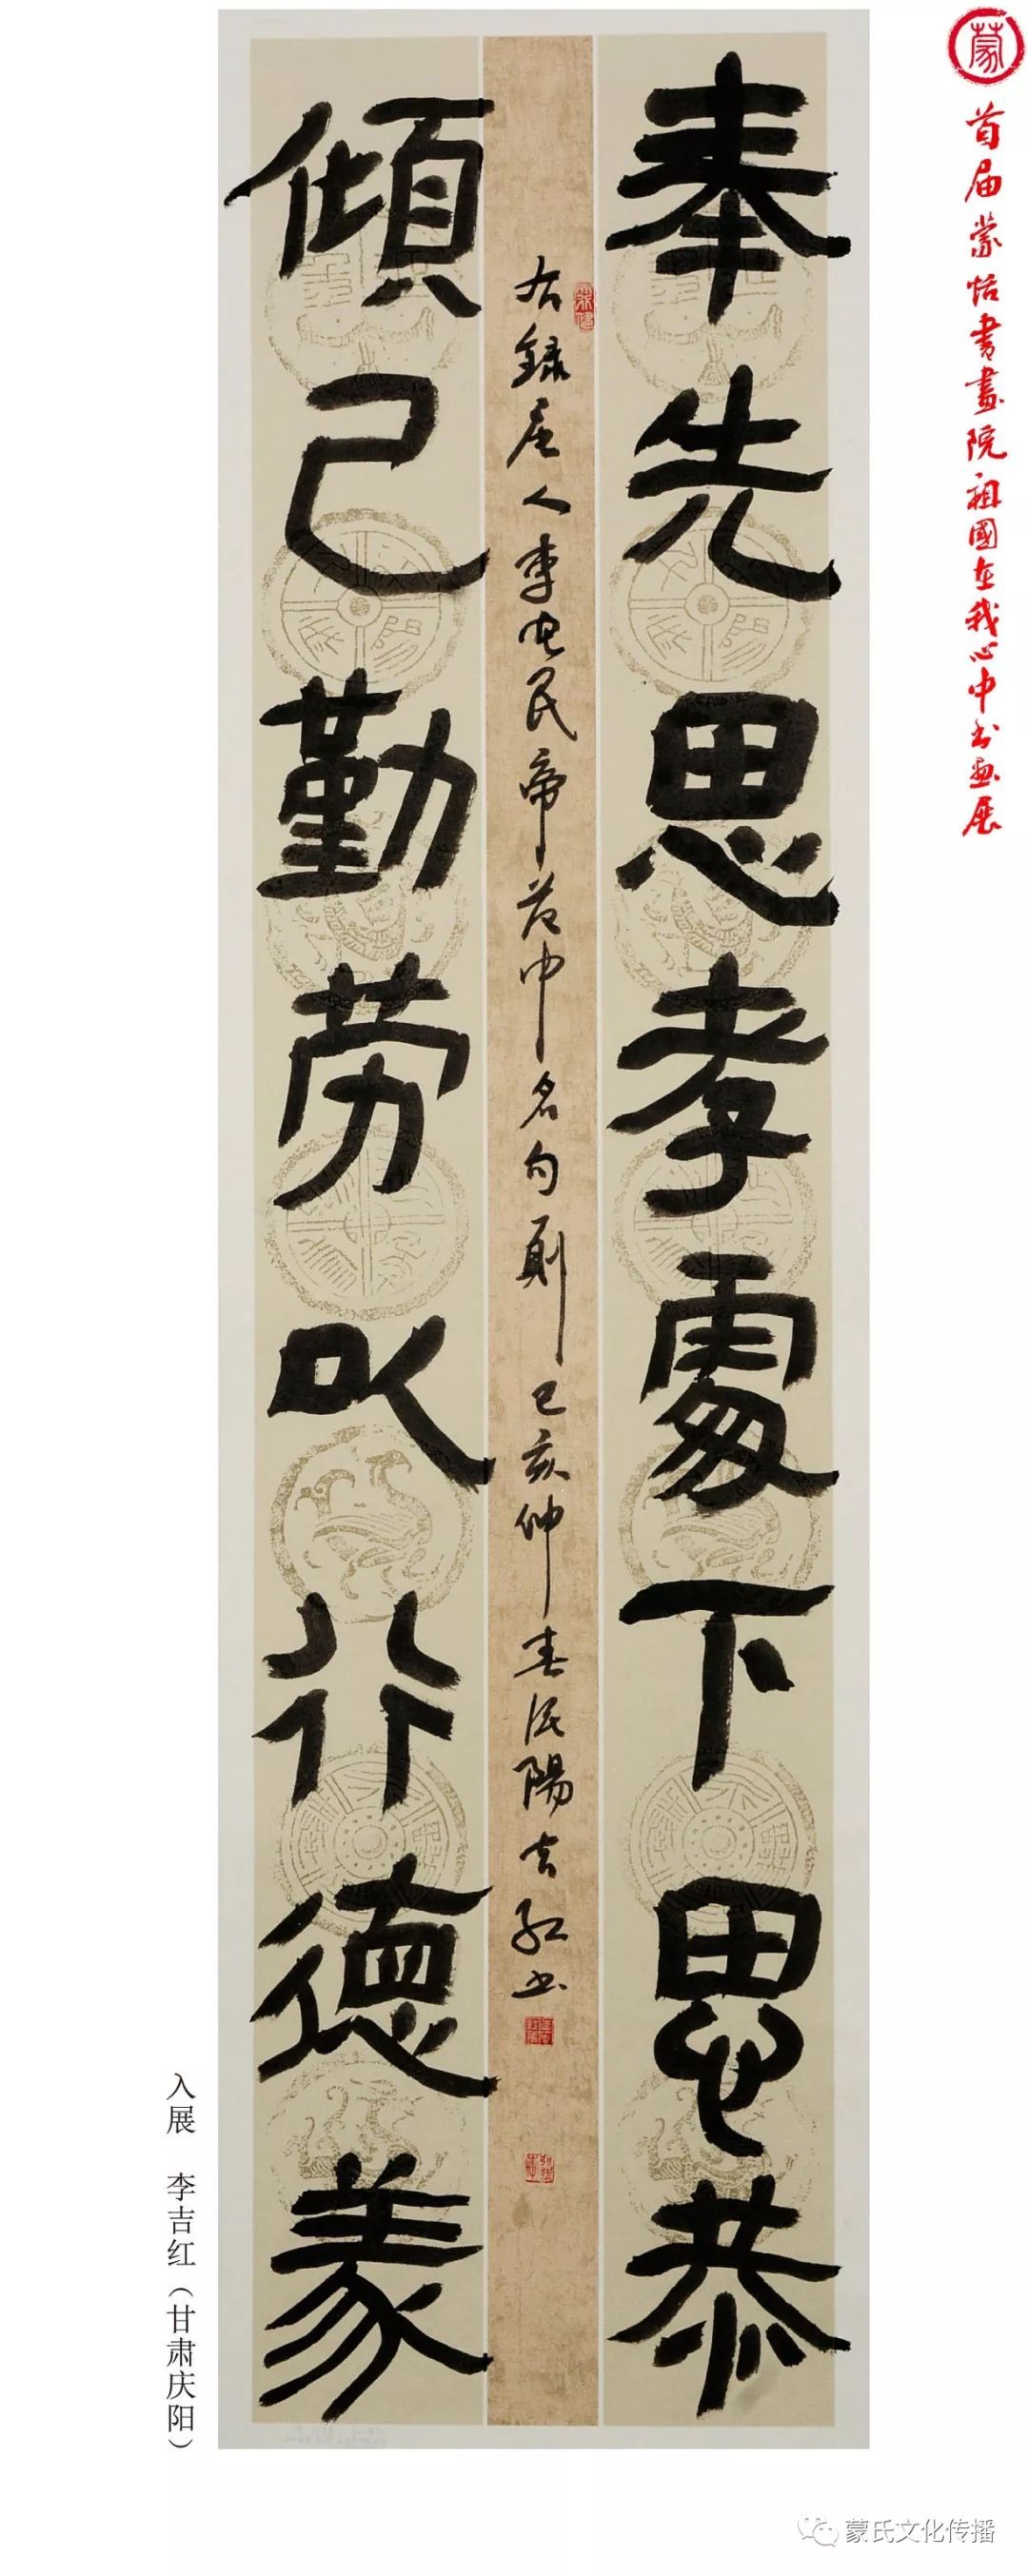 蒙
首届蒙恬書畫院祖國在我心中书画展
奉先思孝處下思恭
傾己勤劳以行德義
右録唐人李世民帝范中名句则己亥仲春庆陽吉红书
入展 李吉红（甘肃庆阳）
蒙氏文化传播